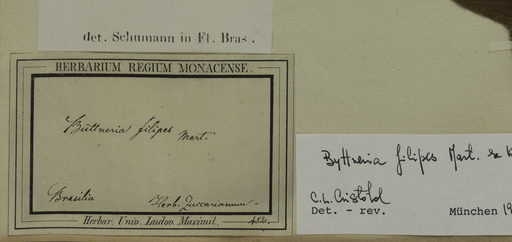 det. Schumann in Fl. Bras.
HERBARIUM REGIUM MONACENSE.
Büttneria filipes Mart.
Brasilia
Herb. Zuccarinanum.
Herbar. Univ. Ludov. Maximil.
Byttneria filipes Mart. ex K
C.L. Cristóbal
Det. - rev. München 19